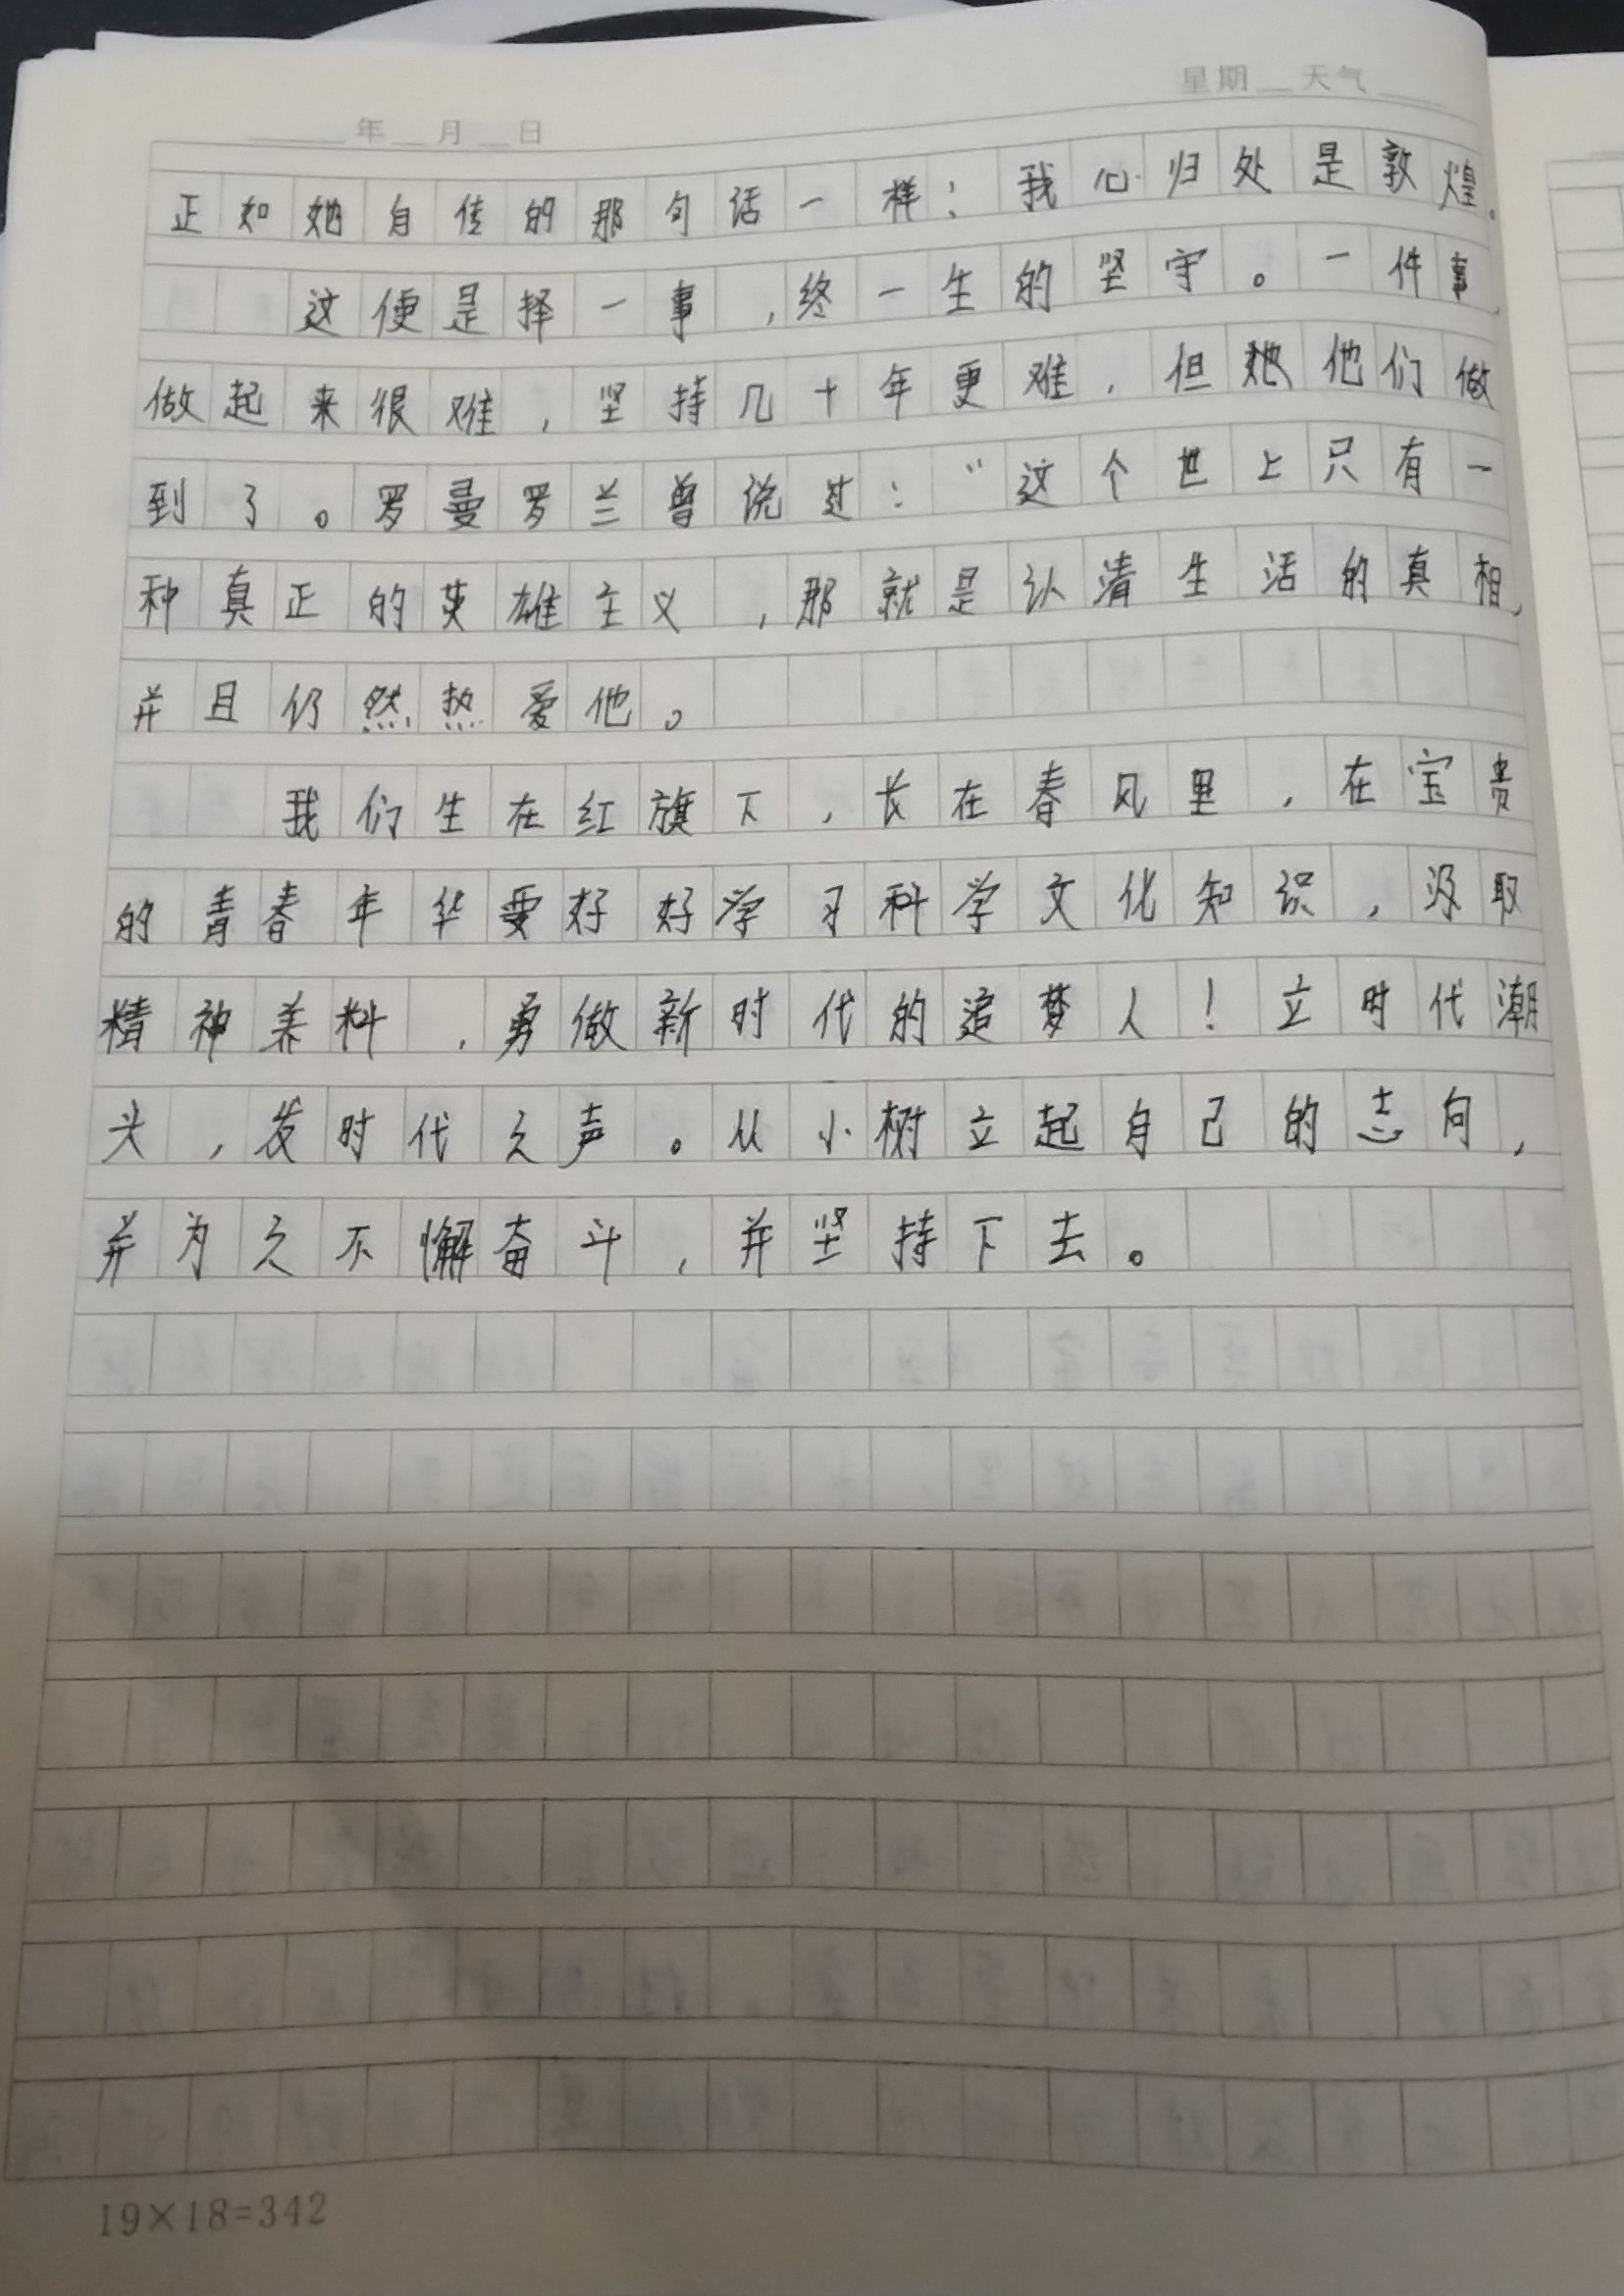 星期 天气
年 月 日
正如她自传的那句话一样：我心归处是敦煌。
这便是择一事，终一生的坚守。一件事，
做起来很难，坚持几十年更难，但她他们做
到了。罗曼罗兰曾说过：“这个世上只有一
种真正的英雄主义，那就是认清生活的真相，
并且仍然热爱他。
我们生在红旗下，长在春风里，在宝贵
的青春年华要好好学习科学文化知识，汲取
精神养料，勇做新时代的追梦人！立时代潮
头，发时代之声。从小树立起自己的志向，
并为之不懈奋斗，并坚持下去。
19×18=342